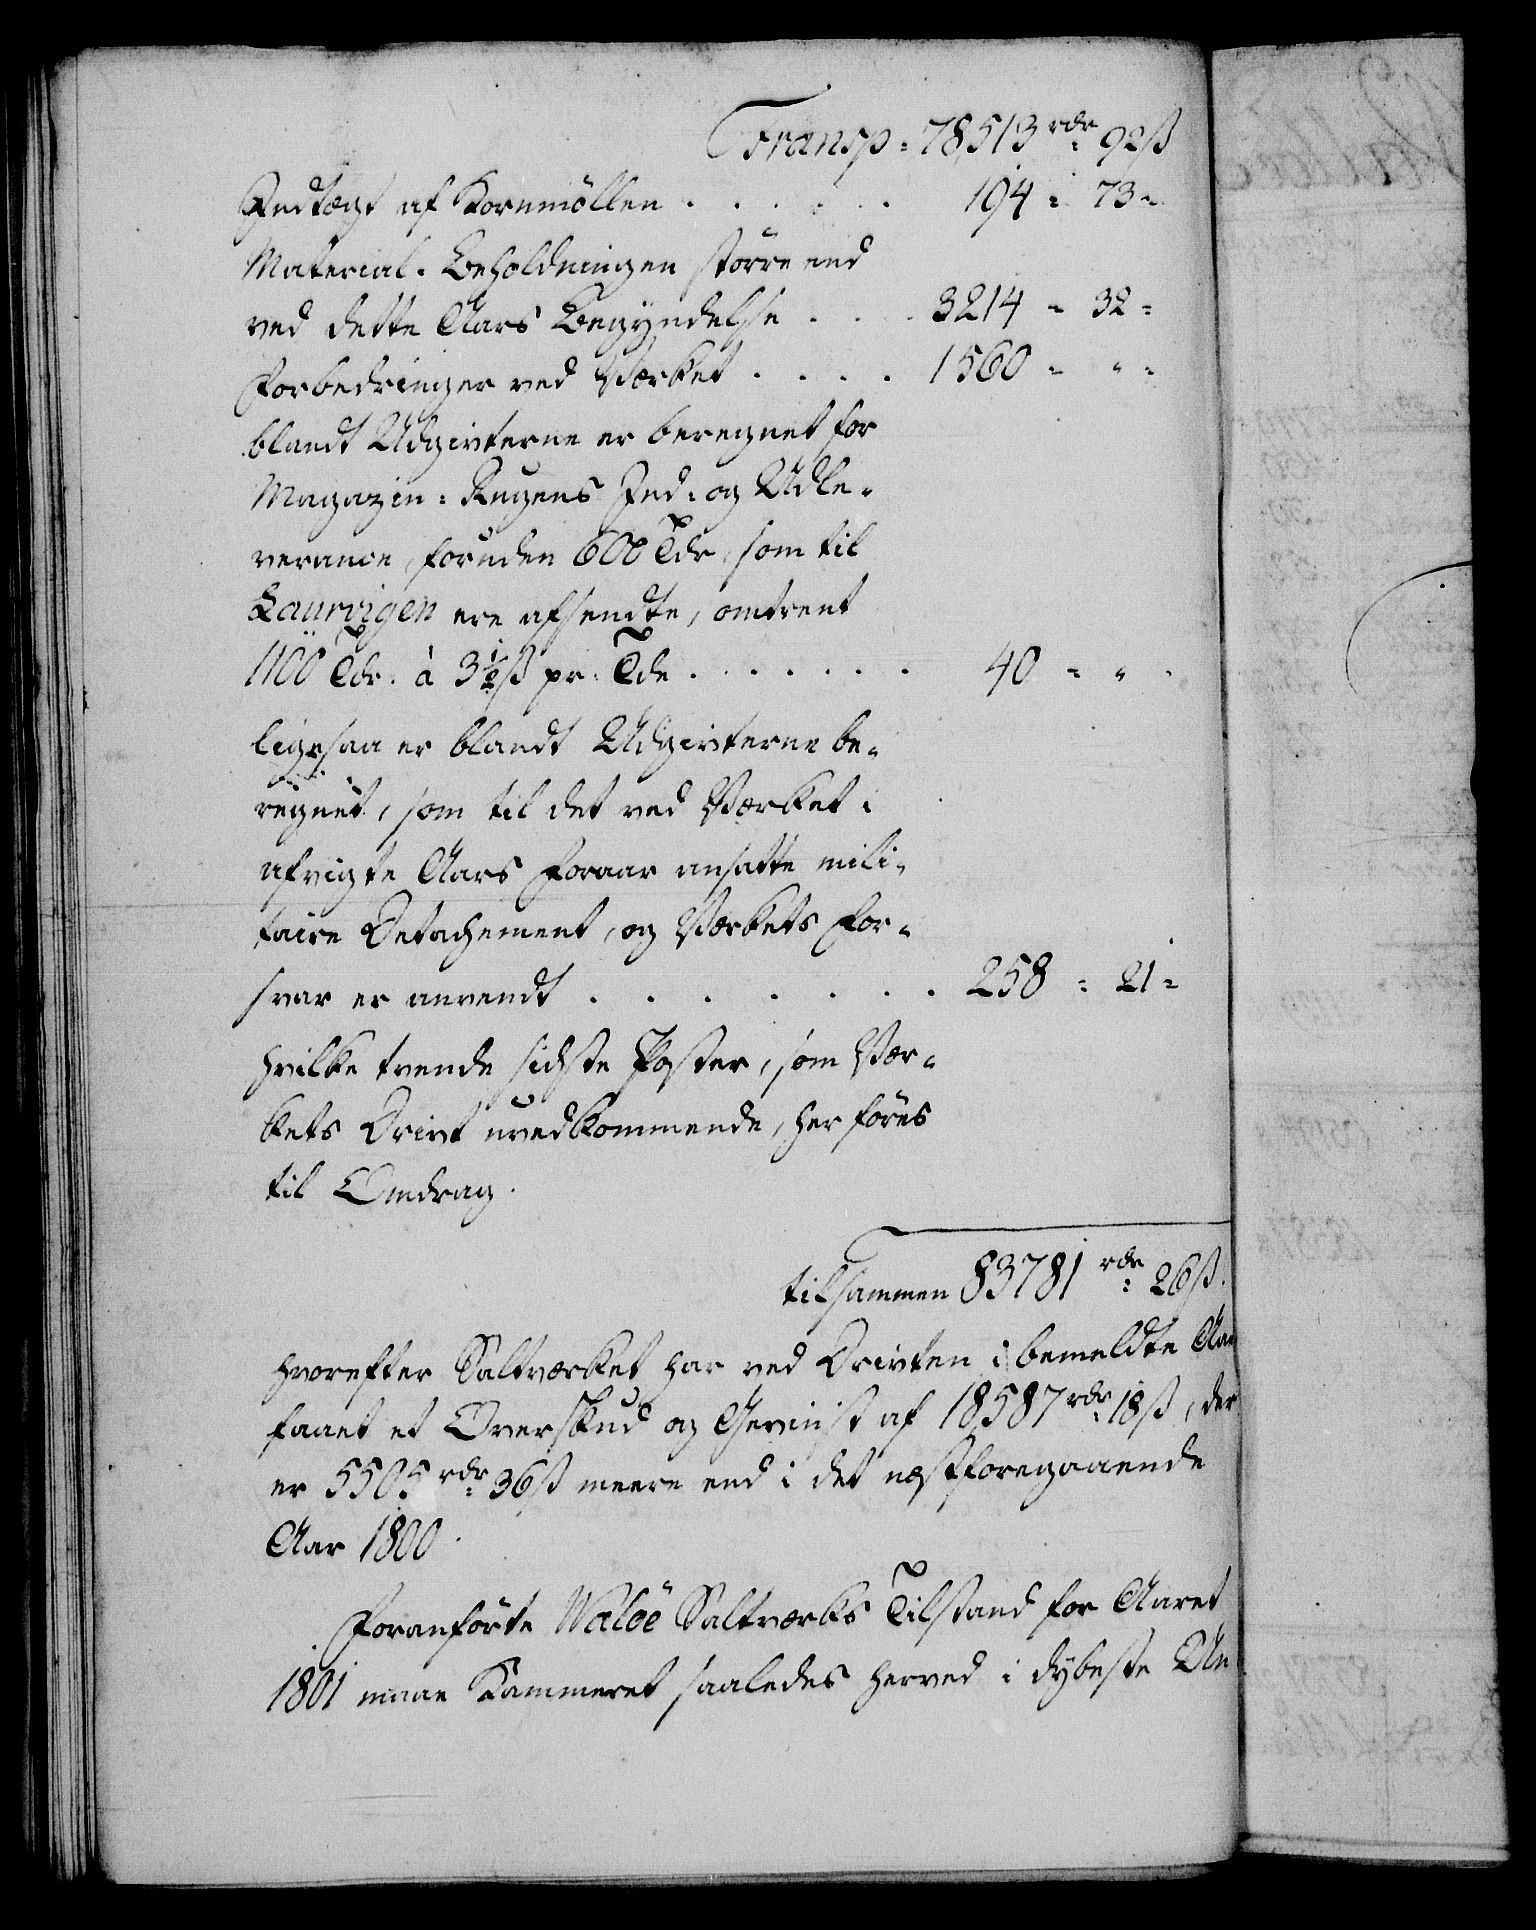 Transp: 78,513 rdr: 92 ß
Indtægt af Kornmöllen . . . . 194 = 73 =
Material-Beholdningen större end
ved dette Aars Begyndelse . . . 3214 = 32 =
Forbedringer ved Værket . . . . 1560 = " =
blandt Udgivterne er beregnet for
Magazin-Rugens Ind- og Udle-
verance, foruden 600 Tdr, som til
Laurvigen ere afsendte, omtrent
1100 Tdr. à 3½ ß pr: Tde . . . . . . . 40 = " =
ligesaa er blandt Udgivterne be-
regnet, som til det ved Værket i
afvigte Aars Foraar ansatte mili-
taire Detachement, og Værkets For-
svar er anvendt . . . . . . . 258 = 21 =
hvilke tvende sidste Poster, som Vær-
kets Drivt uvedkommende, her föres
til Omdrag.
tilsammen 83781 rdr: 26 ß.
hvorefter Saltværket har ved Drivten i bemeldte Aar
faaet et Overskud og Gevinst af 18,587 rdr: 18 ß, der
er 5505 rdr: 36 ß meere end i det næstforegaaende
Aar 1800.
Foranförte Walöe Saltværks Tilstand for Aaret
1801 maae Kammeret saaledes herved i dybeste Un